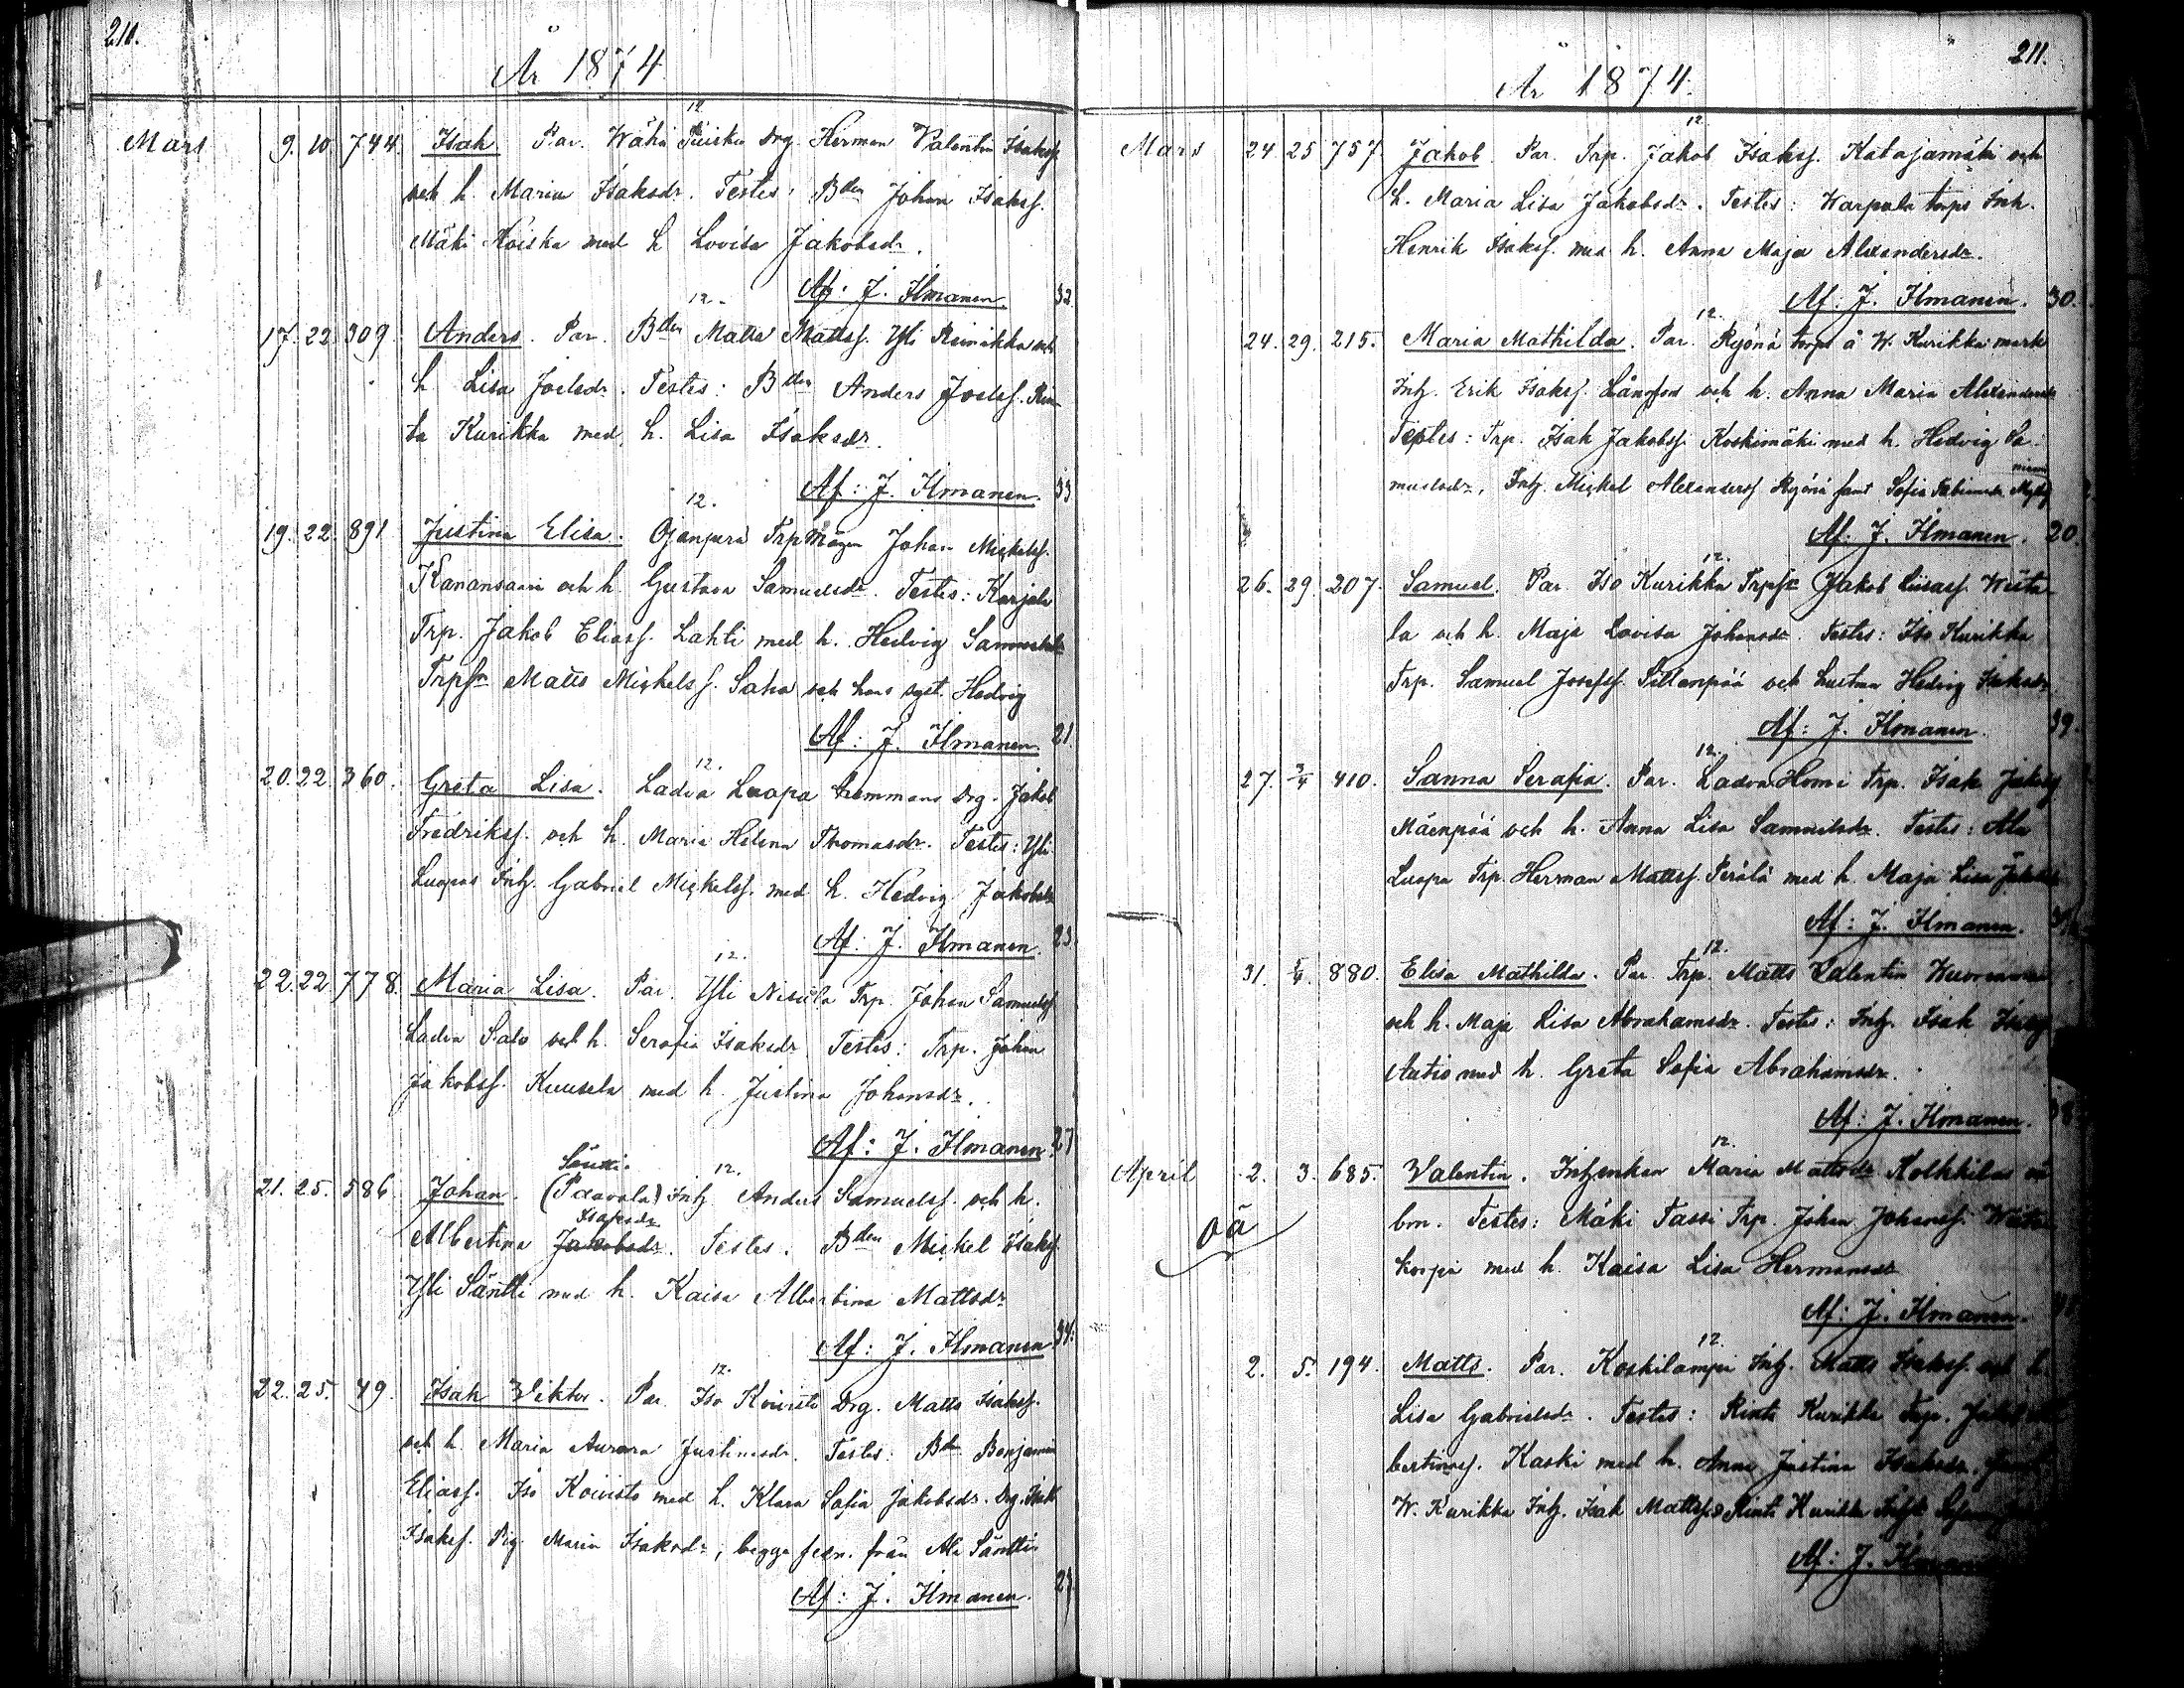 210.
År 1874
12
Mars 9. 10 744. Isak Par. Drg. Herman Valentin Isakss.
och h. Maria Isaksdr. Testes: Bden Johan Isakss.
Mäki Koiska med h Lovisa Jakobsdr.
Af: J. Ilmanen. 32
12.
17. 22 309. Anders. Par. Bden Matts Mattss. Yli Reinikka och
h Lisa Joelsdr. Testes: Bden Anders Joelss. Rin-
ta Kurikka med h. Lisa Isaksdr.
12. Af: J. Ilmanen. 33
19. 22. 891 Justina Elisa. Ojanperä Trpmågen Johan Mickelss.
Kanansaari och h. Gustava Samuelsdr. Testes: Karjala
Trp. Jakob Eliass. Lahti med h. Hedvig Samuelsdr
Trpsn Matts Mickelss. Saha och hans syst. Hedvig
Af: J. Ilmanen. 21
12.
20. 22. 360. Greta Lisa. Ladva Luopa hemmans Drg. Jakob
Fredrikss. och h. Maria Helena Thomasdr. Testes: Yli
Luopas Inh. Gabriel Mickelss. med h. Hedvig Jakobsdr
Af: J. Ilmanen. 23.
12.
22. 22 778. Maria Lisa. Par. Yli Nisula Trp. Johan Samuelss
Ladva Salo och h. Serafia Isaksdr Testes: Trp. Johan
Jakobss. Kuusela med h. Justina Johansdr.
Af: J. Ilmanen. 27
Säntti. 12.
21. 25. 586 Johan. (Paavola) Inh Anders Samuelss. och h.
Isaksdr
Albertina Jakobsdr. Testes. Bden Mickel Isakss.
Yli Säntti med h. Kaisa Albertina Mattsdr
Af: J. Ilmanen 34.
12.
22. 25. 49. Isak Viktor. Par. Iso Koivisto Drg. Matts Isakss.
och h. Maria Aurora Justinasdr. Testes: Bdn Benjamin
Eliass. Iso Koivisto med h. Klara Sofia Jakobsdr. Drg. Isak
Isakss. Pig. Maria Isaksdr, begge från Ala Säntti
Af: J. Ilmanen. 27
211.
År 1874.
12
Mars 24 25 757. Jakob. Par. Trp. Jakob Isakss. Katajamäki och
h. Maria Lisa Jakobsdr. Testes: Warpala torps Inh.
Henrik Isakss. med h. Anna Maja Alexandersdr.
Af: J. Ilmanen. 30.
12.
24. 29. 215. Maria Mathilda. Par. Ryönä torps å W. Kurikka mark
Inh. Erik Isakss. Långfors och h. Anna Maria Alexandersdr
Testes: Trp. Isak Jakobss. Koskimäki med h. Hedvig Sa-
muelsdr, Inh. Mickel Alexanderss Ryönä samt Sofia
Af. J. Ilmanen. 20.
12.
26. 29. 207. Samuel. Par. Iso Kurikka Trpsn Jakob Westa-
la och h. Maja Lovisa Johansdr. Testes: Iso Kurikka
Trp. Samuel Josefss. Sillanpää och hustrun Hedvig Isaksdr.
Af: J. Ilmanen. 39.
12.
27. 3/4 410. Sanna Serafia. Par. Ladva Homi Trp. Isak
Mäenpää och h. Anna Lisa Samuelsdr. Testes: Ala
Luopa Trp. Herman Mattss. Perälä med h. Maja Lisa
Af: J. Ilmanen.
12.
31. 5/4. 880. Elisa Mathilda. Par. Trp. Matts Valentin
och h. Maja Lisa Abrahamsdr. Testes: Inh. Isak
Autio med h. Greta Sofia Abrahamsdr.
Af: J. Ilmanen.
12.
April 2. 3. 685. Valentin. Inhenkan Maria Mattsdr Kolkkilas
oä
bm. Testes: Mäki Passi Trp. Johan Johanss.
korpi med h. Kaisa Lisa Hermansdr
Af: J. Ilmanen.
12.
2. 5. 194. Matts. Par. Koskilampi Inh. Matts Isakss. och h
Lisa Gabrielsdr. Testes: Rinta Kurikka Trp.
bertinass. Kaski med h. Anna Justina Isaksdr.
W. Kurikka Inh. Isak Mattss. Rinta Kurikka
Af: J. Ilmanen